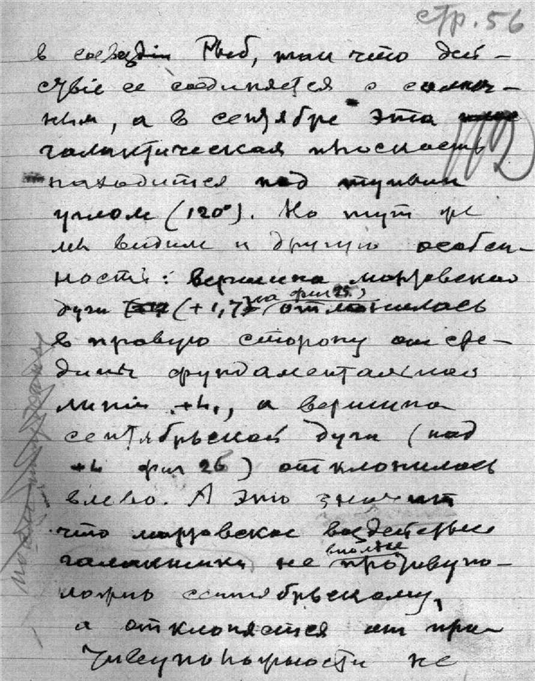 стр. 56
в созвездiи Рыб, так что дей-
ствiе ее соединяется с солнеч-
ным, а в сентябре эта
галактическая плоскость
112
находится под тупым
углом (120°). Но тут же
мы видим и другую особен-
ность: вершина мартовской
на фиг 25
дуги (+1,7) отклонилась
в правую сторону от сре-
дины фундаментальной
линiи +4, а вершина
сентябрьской дуги (над
+4 фиг 26) отклонилась
влево. А это значит
что мартовское воздействие
вполне
галактики не противупо-
ложно сентябрьскому,
а отклоняется от про-
тивуположности не